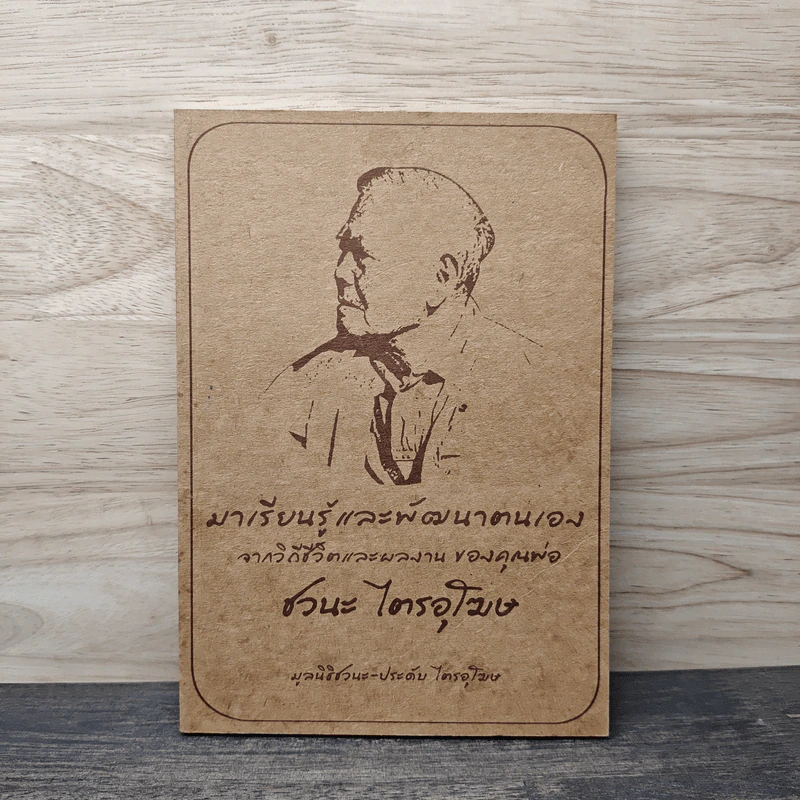 มาเรียนรู้และพัฒนาตนเอง
จากวิถีชีวิตและผลงาน ของคุณพ่อ
ชวนะ ไตรอุโฆษ
มูลนิธิชวนะ-ประดับ ไตรอุโฆษ